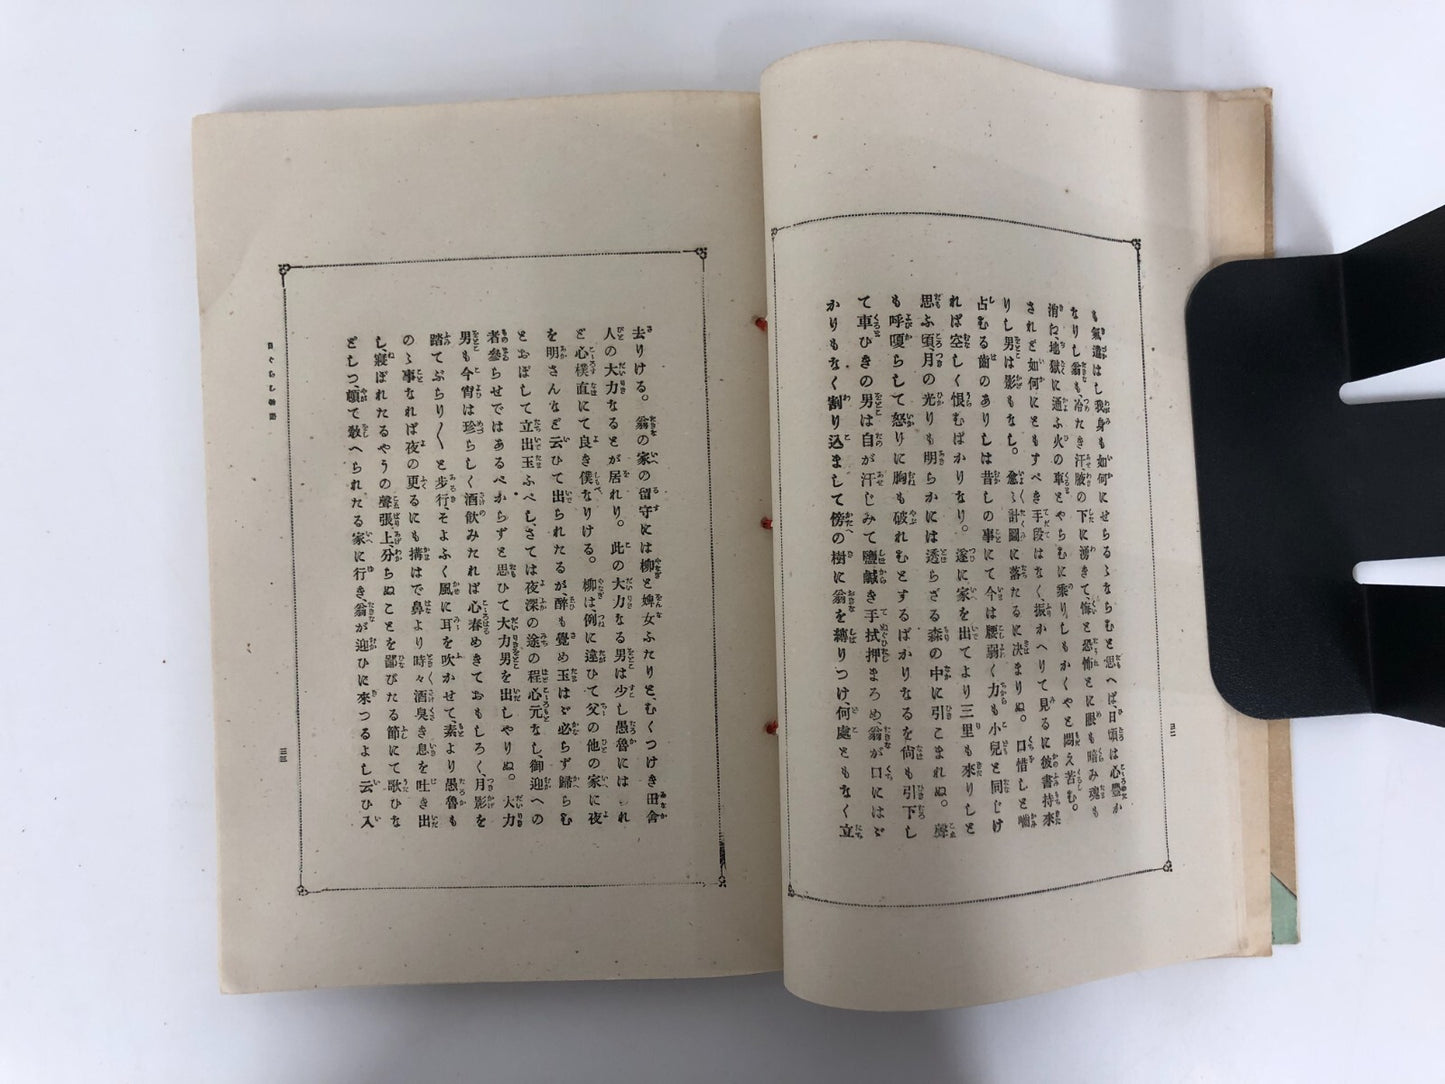 も氣遣はし我身も如何にせらるゝならむと思へば、日頃は心豊か
なりし翁も、冷たき汗腋の下に湧きて、悔と恐怖とに眼も暗み魂も
消ね地獄に通ふ火の車とやらむに乘りしもかくやと悶え苦む。
されど如何にともすべき手段はなく、振かへりて見るに彼書持來
りし男は影もなし。愈々計圖に落たるに決まりぬ。口惜しと嚙
占むる齒のありしは昔しの事にて今は腰弱く力も小兒と同じけ
れば空しく恨むばかりなり。遂に家を出てより三里も來りしと
思ふ頃、月の光りも明らかには透らざる森の中に引こまれぬ。聲
も呼嗄らして怒りに胸も破れむとするばかりなるを尙も引下し
て車ひきの男は自が汗じみて鹽鹹き手拭押まろめ、翁が口にはど
かりもなく割り込まして傍の樹に翁を縛りつけ、何處ともなく立
三三
去りける。翁の家の留守には柳と婢女ふたりと、むくつけき田舎
人の大力なるとが居れり。此の大力なる男は少し愚魯にはれ
ど心樸直にて良き僕なりける。柳は、例に違ひて父の他の家に夜
を明さんなど云ひて出られたるが、醉も覺め玉はゞ必らず歸らむ
とおぼして立出玉ふべし、さては夜深の途の程心元なし、御迎への
者參らせではあるべからずと思ひて大力男を出しやりぬ。大力
男も今宵は珍らしく酒飲みたれば心春めきておもしろく、月影を
踏てぶらり〱と歩行、そよふく風に耳を吹かせて、素より愚魯も
のゝ事なれば夜の更るにも搆はで鼻より時々酒臭き息を吐き出
し、寢ぼれたるやうの聲張上、分らぬことを鄙びたる節にて歌ひな
どしつ、頓て敎へられたる家に行き、翁が迎ひに來つるよし云ひ入
ぐらし物語
三四